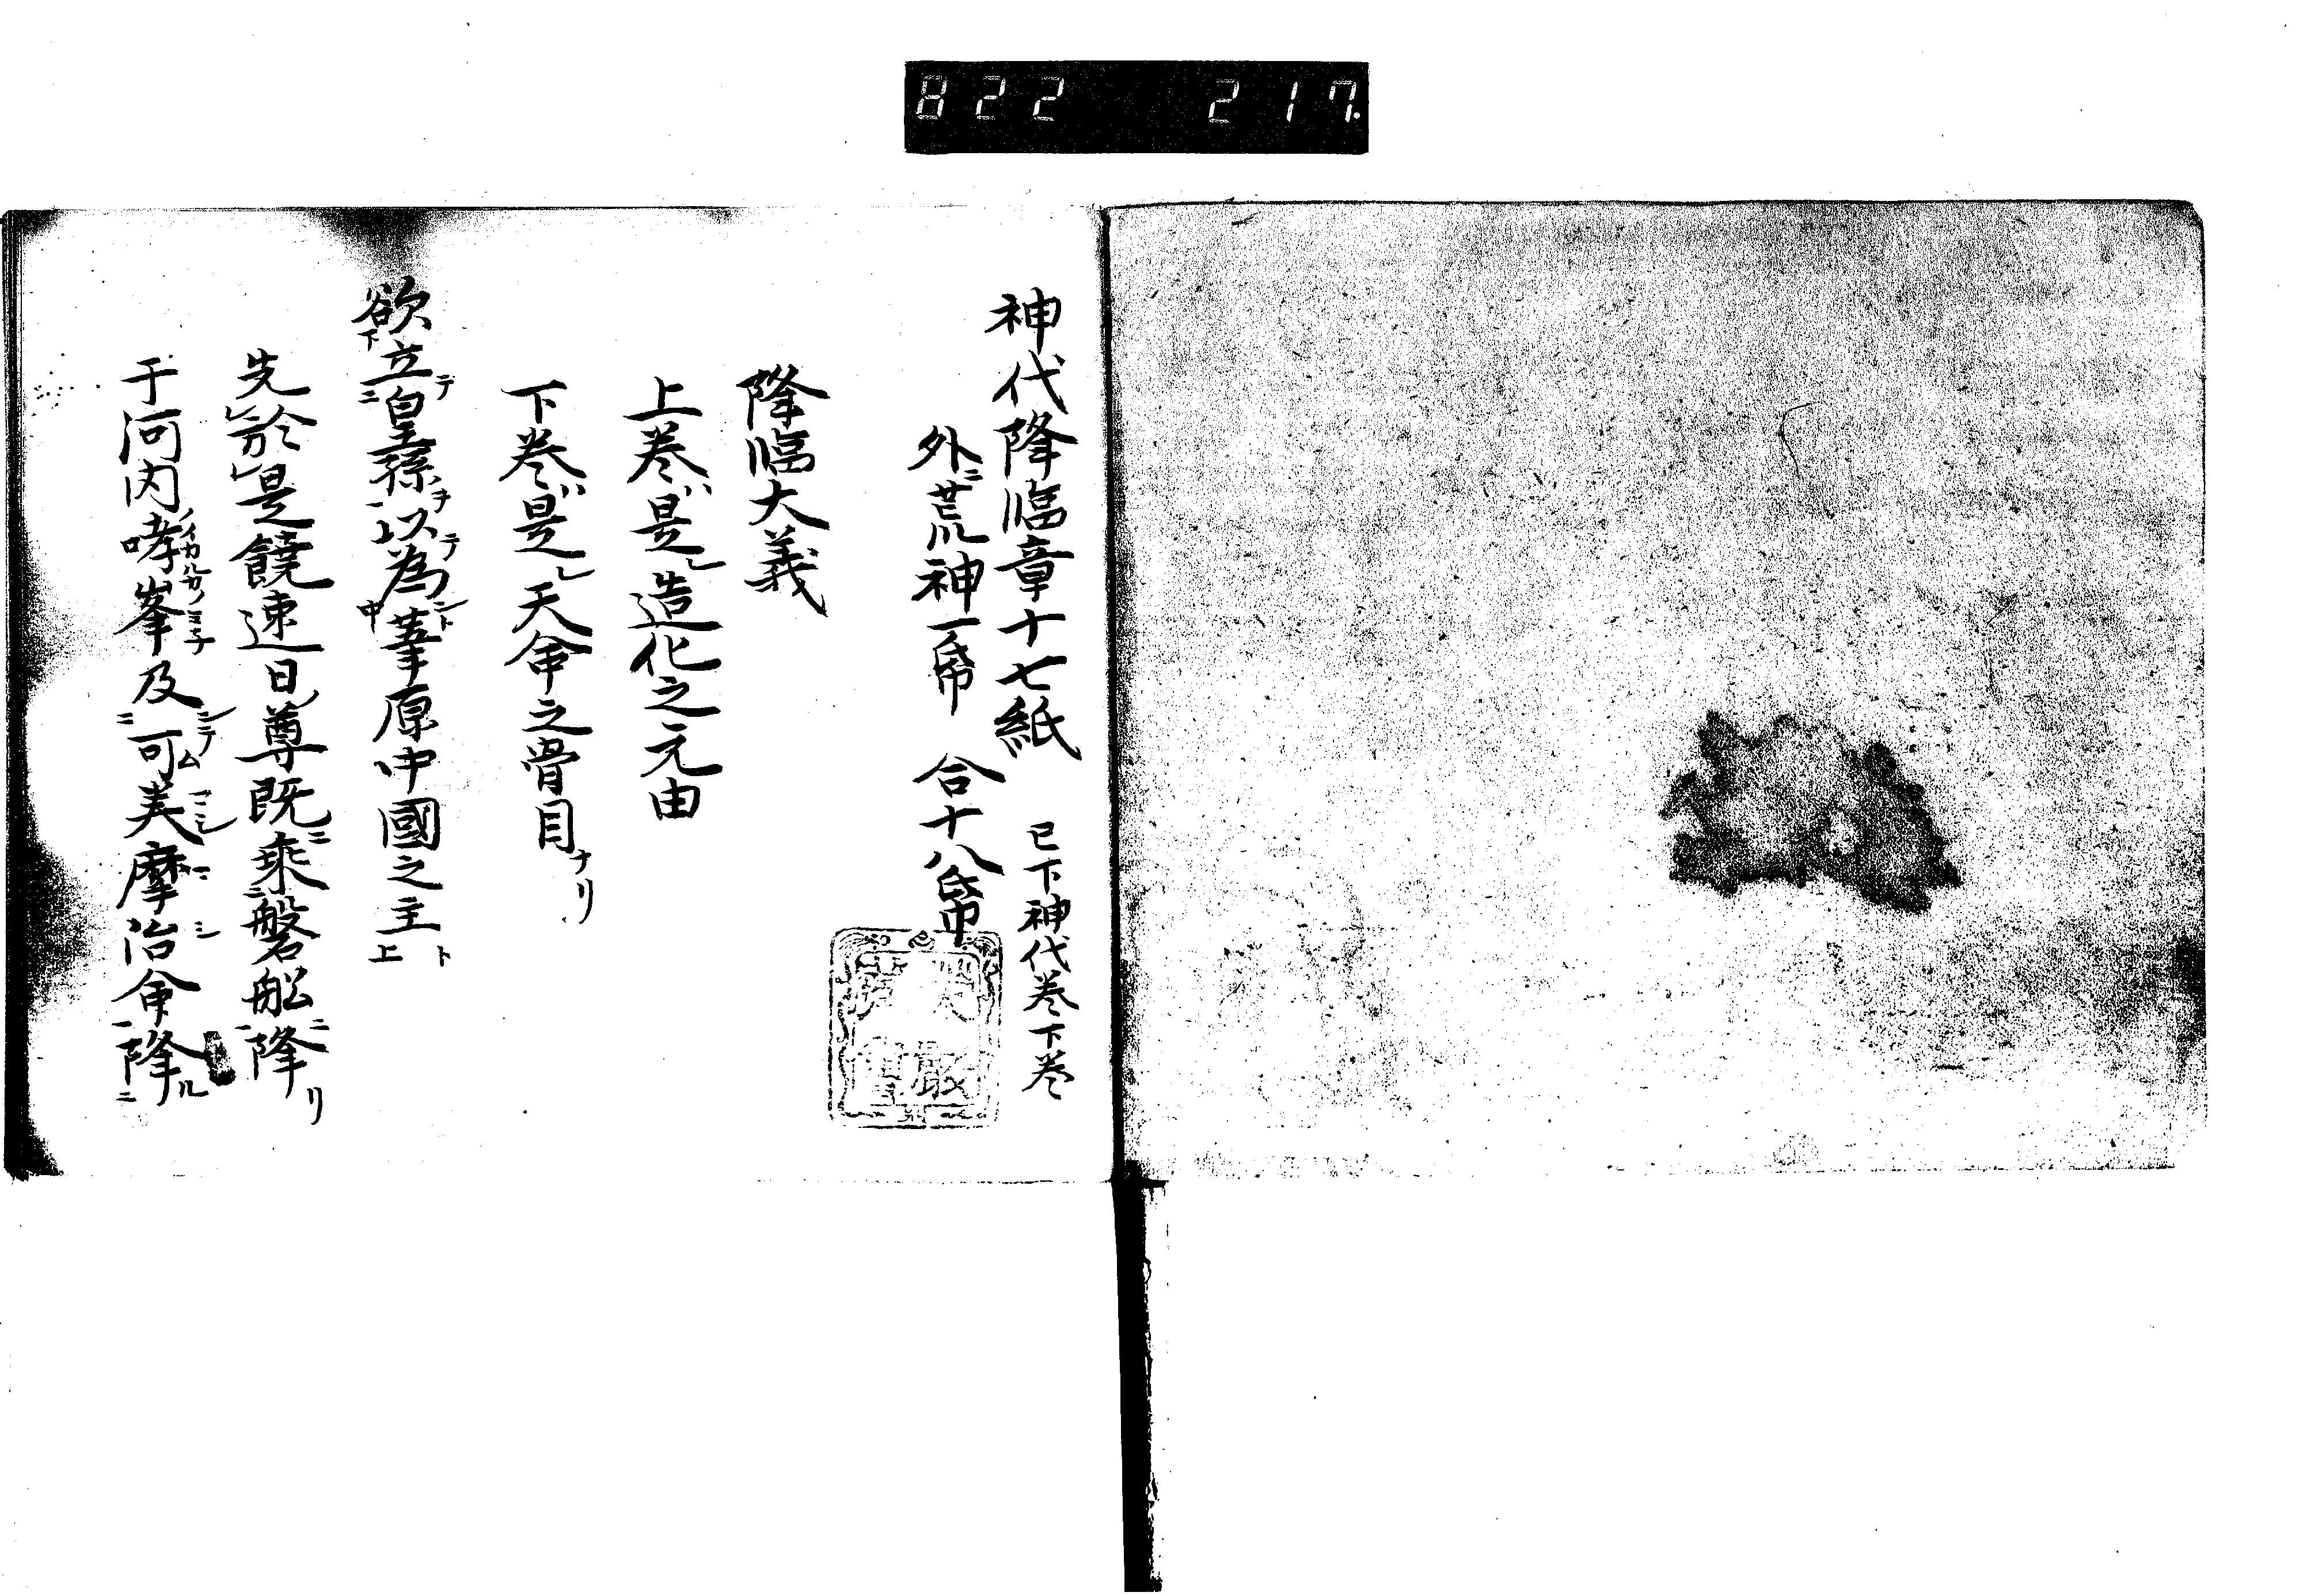 822 217.
神代降臨章十七紙 已下神代巻下巻
外ニ荒神一帋 合十八帋
降臨大義
上巻ハ是レ造化之元由
下巻ハ是レ天命之骨目ナリ
欲下立テ二皇孫ヲ一以テ為中ント葦原中國之主上ト
先レ於レ是饒速日尊既ニ乗二磐船一ニ降リ
于河内哮峯及二可美摩治命一降ル二